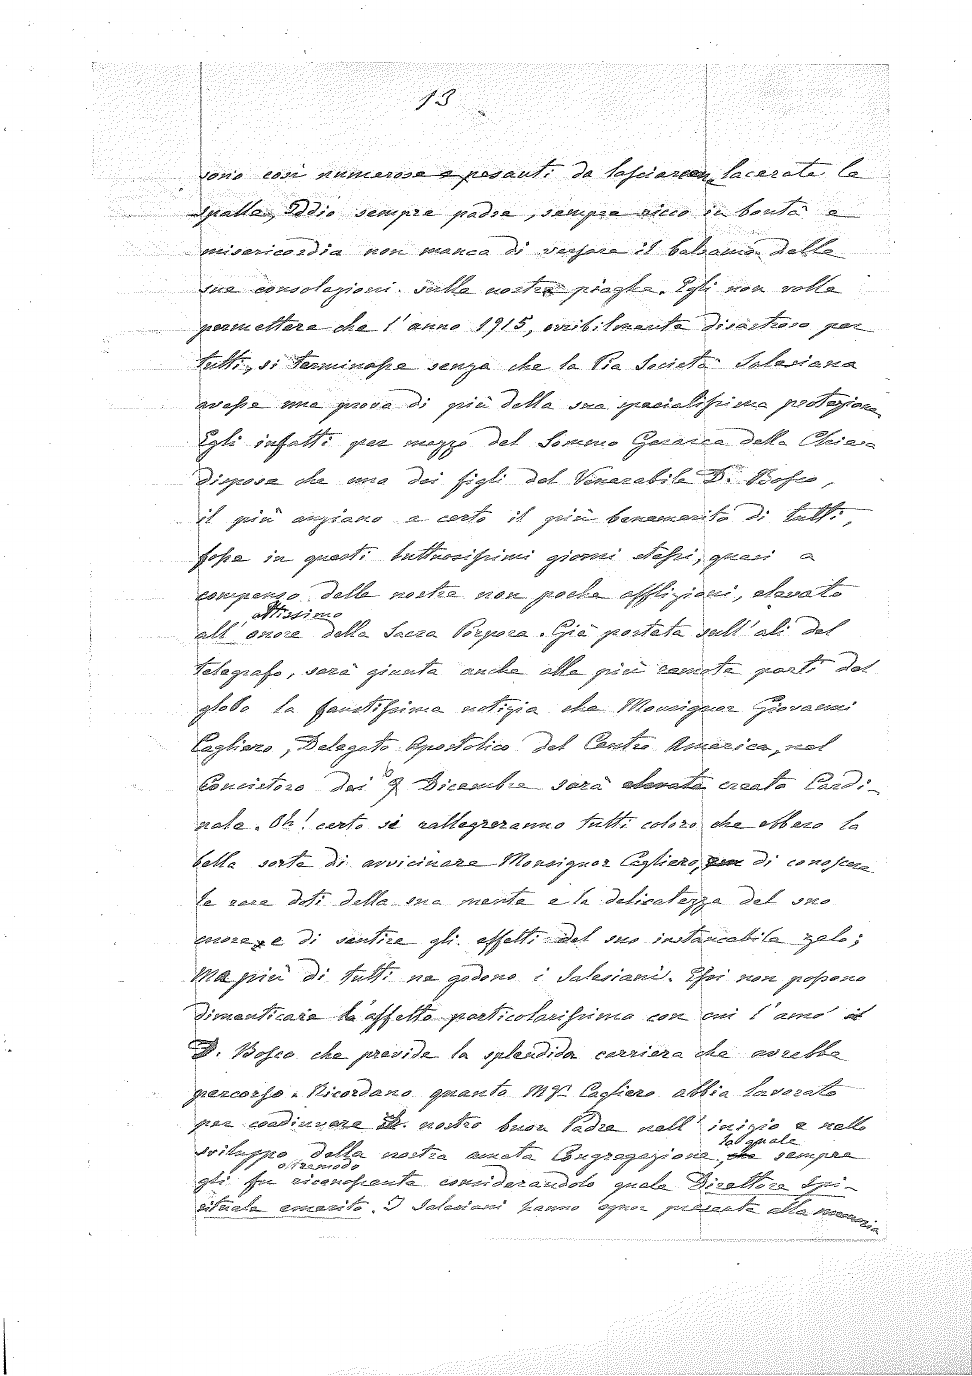 13
sono così numerose e pesanti da lasciarcene lacerate le
spalle, Iddio sempre padre, sempre ricco in bontà e
misericordia non manca di versare il balsamo delle
sue consolazioni sulle nostre piaghe. Egli non volle
permettere che l'anno 1915, orribilmente disastroso per
tutti, si terminasse senza che la Pia Società Salesiana
avesse una prova di più della sua specialissima protezione.
Egli infatti per mezzo del Sommo Gerarca della Chiesa
dispose che uno dei figli del Venerabile D. Bosco,
il più anziano e certo il più benemerito di tutti,
fosse in questi luttuosissimi giorni stessi, quasi a
compenso delle nostre non poche afflizioni, elevato
altissimo
all'onore della Sacra Porpora. Già portata sull'ali del
telegrafo, sarà giunta anche alle più remote parti del
globo la faustissima notizia che Monsignor Giovanni
Cagliero, Delegato Apostolico del Centro America, nel
Concistoro dei 6 Dicembre sarà elevato creato Cardi-
nale. Oh! certo si rallegreranno tutti coloro che ebbero la
bella sorte di avvicinare Monsignor Cagliero, di conoscere
le rare doti della sua mente e la delicatezza del suo
cuore e di sentire gli effetti del suo instancabile zelo;
ma più di tutti ne godono i Salesiani. Essi non possono
dimenticare l'affetto particolarissimo con cui l'amò il
D. Bosco che previde la splendida carriera che avrebbe
percorso. Ricordano quanto Mgr Cagliero abbia lavorato
per coadiuvare D. nostro buon Padre nell'inizio e nello
la quale
sviluppo della nostra amata Congregazione, che sempre
oltremodo
gli fu riconoscente considerandolo quale Direttore Spi-
rituale emerito. I Salesiani hanno ognor presente alla memoria